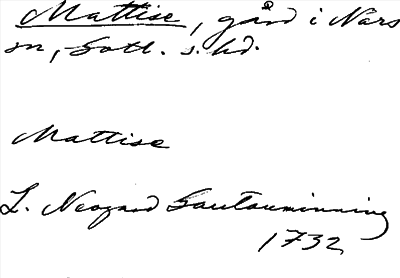 Mattise, gård i När s
sn, Gotl. s. hd.
Mattise
L. Neogard Gautauminning
1732